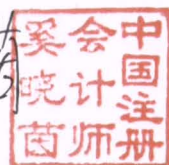 中国注册
会计师
奚晓茵